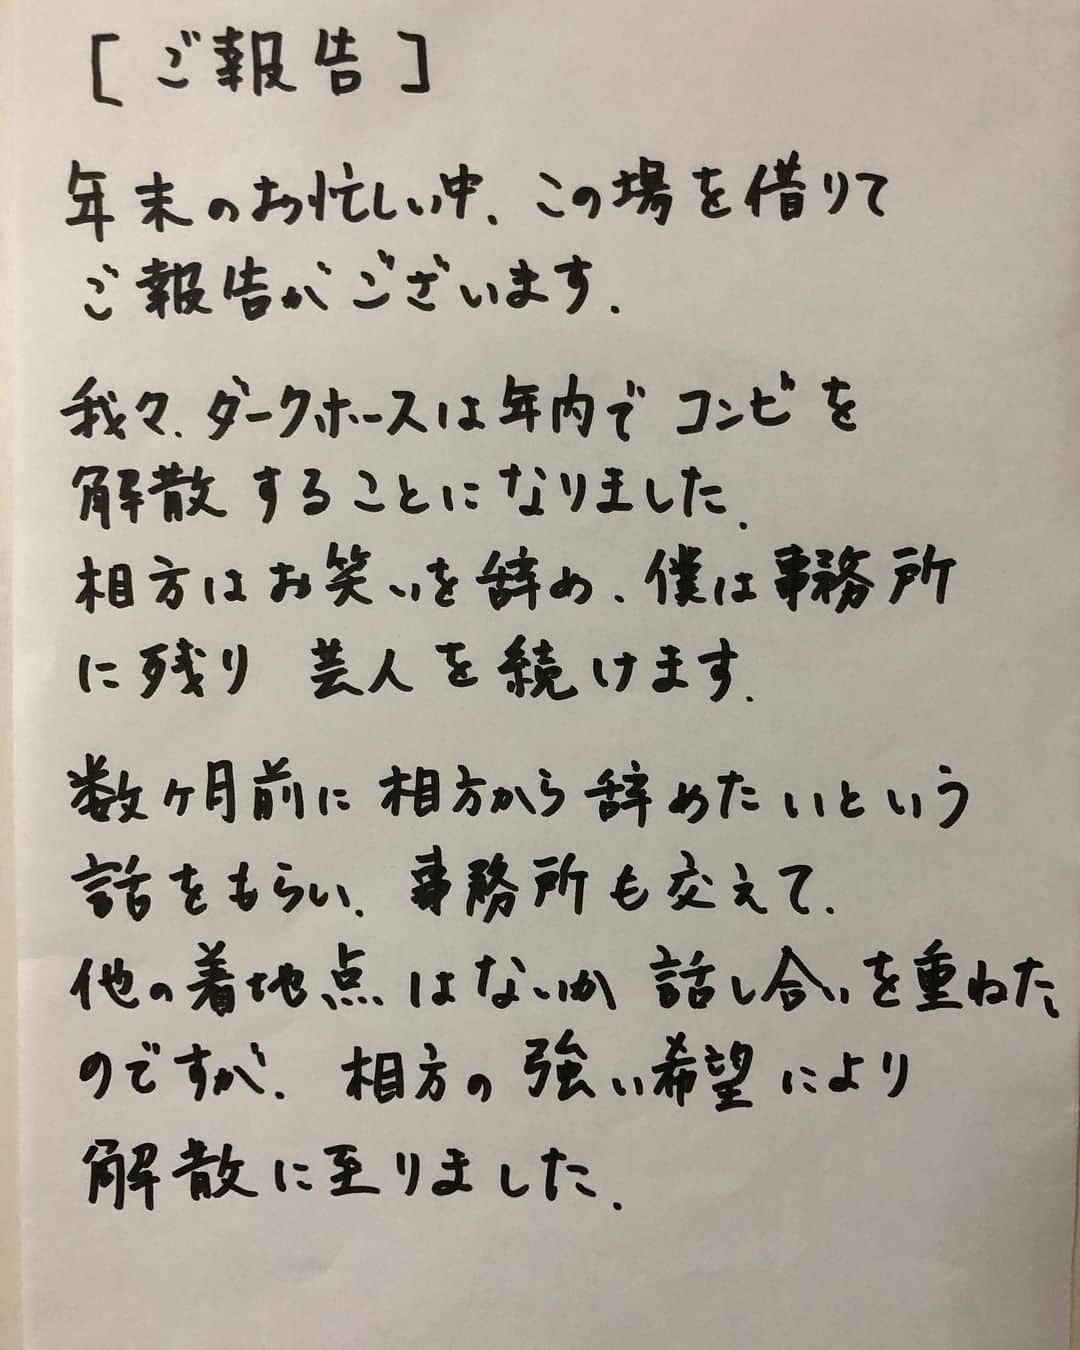 [ご報告]
年末のお忙しい中、この場を借りて
ご報告がございます。
我々、ダークホースは年内でコンビを
解散することになりました。
相方はお笑いを辞め、僕は事務所
に残り 芸人を続けます。
数ヶ月前に相方から辞めたいという
話をもらい、事務所も交えて、
他の着地点はないか 話し合いを重ねた
のですが、相方の強い希望により
解散に至りました。